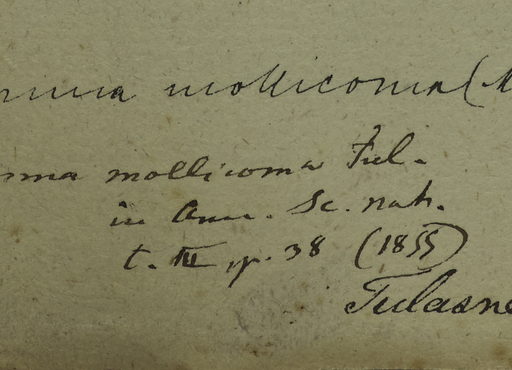 mollicoma (
mollicoma Tul.
in Ann. Sc. nat.
t. III p. 38 (1855)
Tulasne